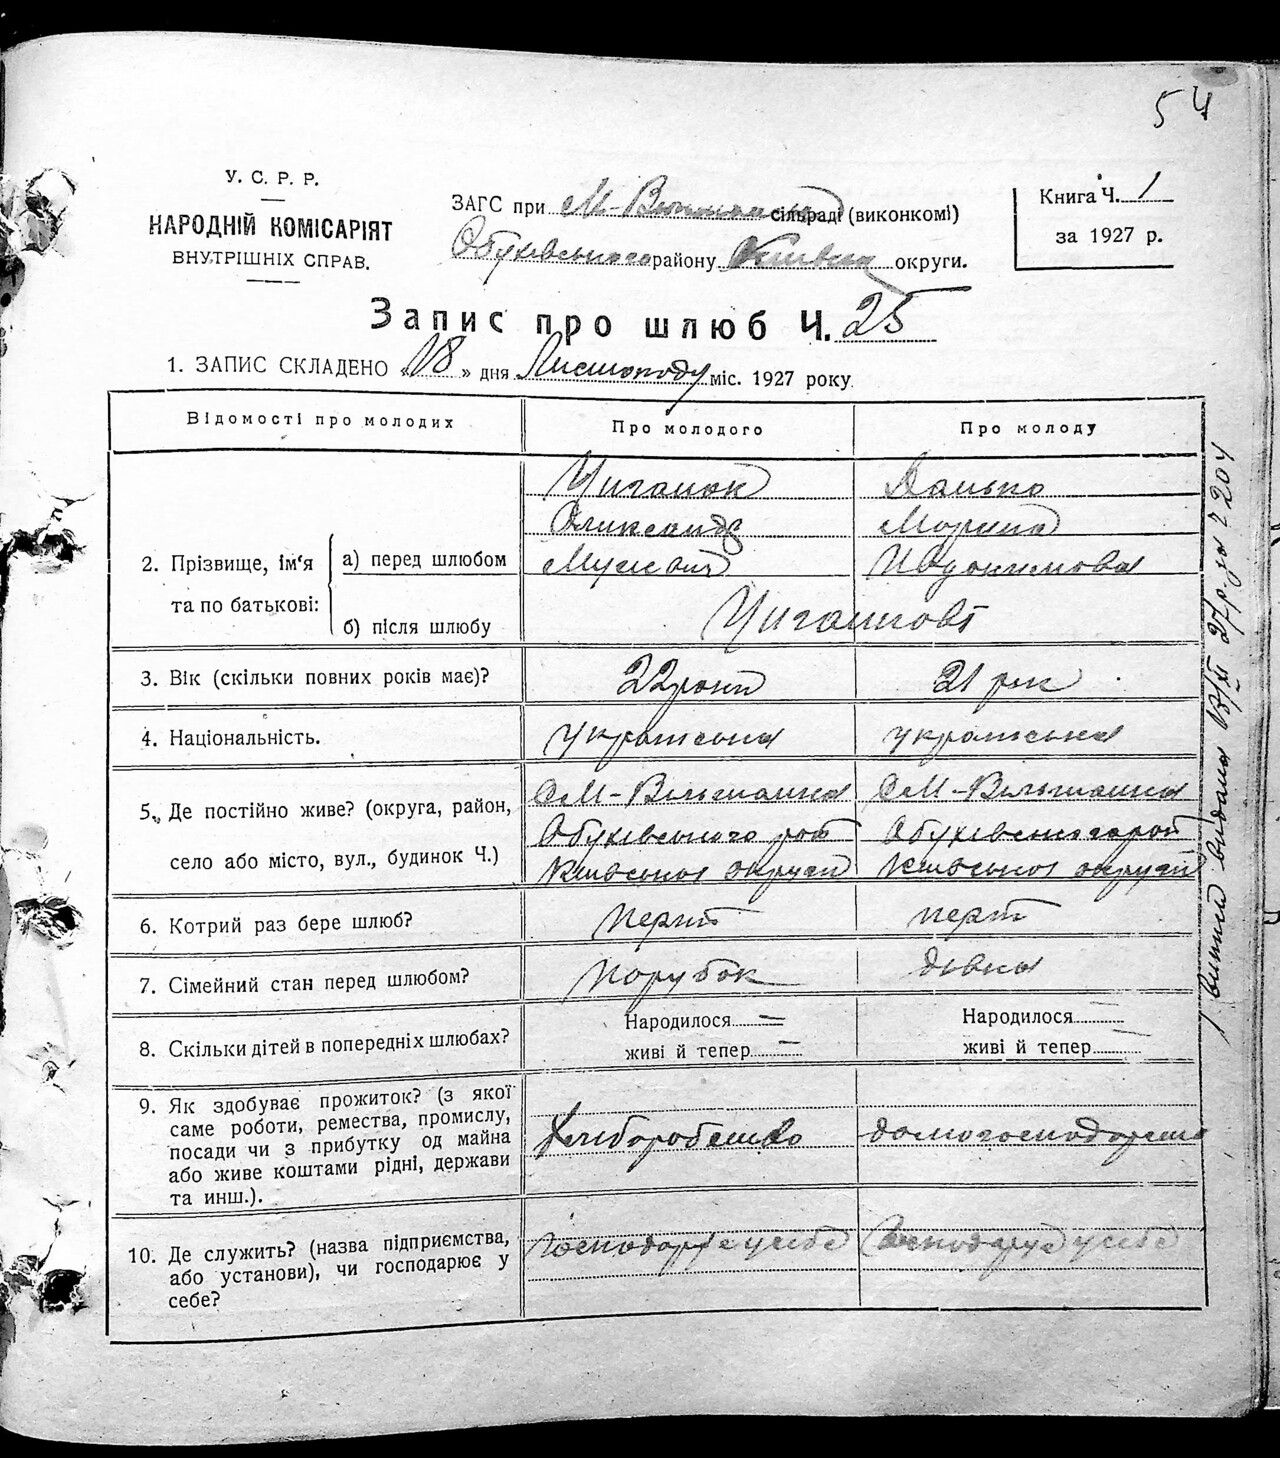 54
У. С. Р. Р.
НАРОДНІЙ КОМІСАРІЯТ
ВНУТРІШНІХ СПРАВ.
ЗАГС при М-Вільшанській сільраді (виконкомі)
Обухівського району Київськ округи.
Книга Ч. 1
за 1927 р.
Запис про шлюб Ч. 25
1. ЗАПИС СКЛАДЕНО «18» дня Листопаду міс. 1927 року
Відомості про молодих
Про молодого
Про молоду
2. Прізвище, ім'я та по батькові:
а) перед шлюбом
Циганок
Олександр
Мусієвич
Данько
Марина
Явдокимовна
б) після шлюбу
Циганкові
3. Вік (скільки повних років має)?
22 роки
21 рік
4. Національність.
українська
українська
5. Де постійно живе? (округа, район,
село або місто, вул., будинок Ч.)
с М-Вільшанка
Обухівського рай
Київської округи
с М-Вільшанка
Обухівського рай
Київської округи
6. Котрий раз бере шлюб?
перший
перший
7. Сімейний стан перед шлюбом?
парубок
дівка
8. Скільки дітей в попередніх шлюбах?
Народилося —
живі й тепер —
Народилося —
живі й тепер —
9. Як здобуває прожиток? (з якої
саме роботи, ремества, промислу,
посади чи з прибутку од майна
або живе коштами рідні, держави
та инш.).
Хліборобство
домогосподарство
10. Де служить? (назва підприємства,
або установи), чи господарює у
себе?
Господарує у себе
Господарує у себе
видана 18/XI 27 р. за № 204